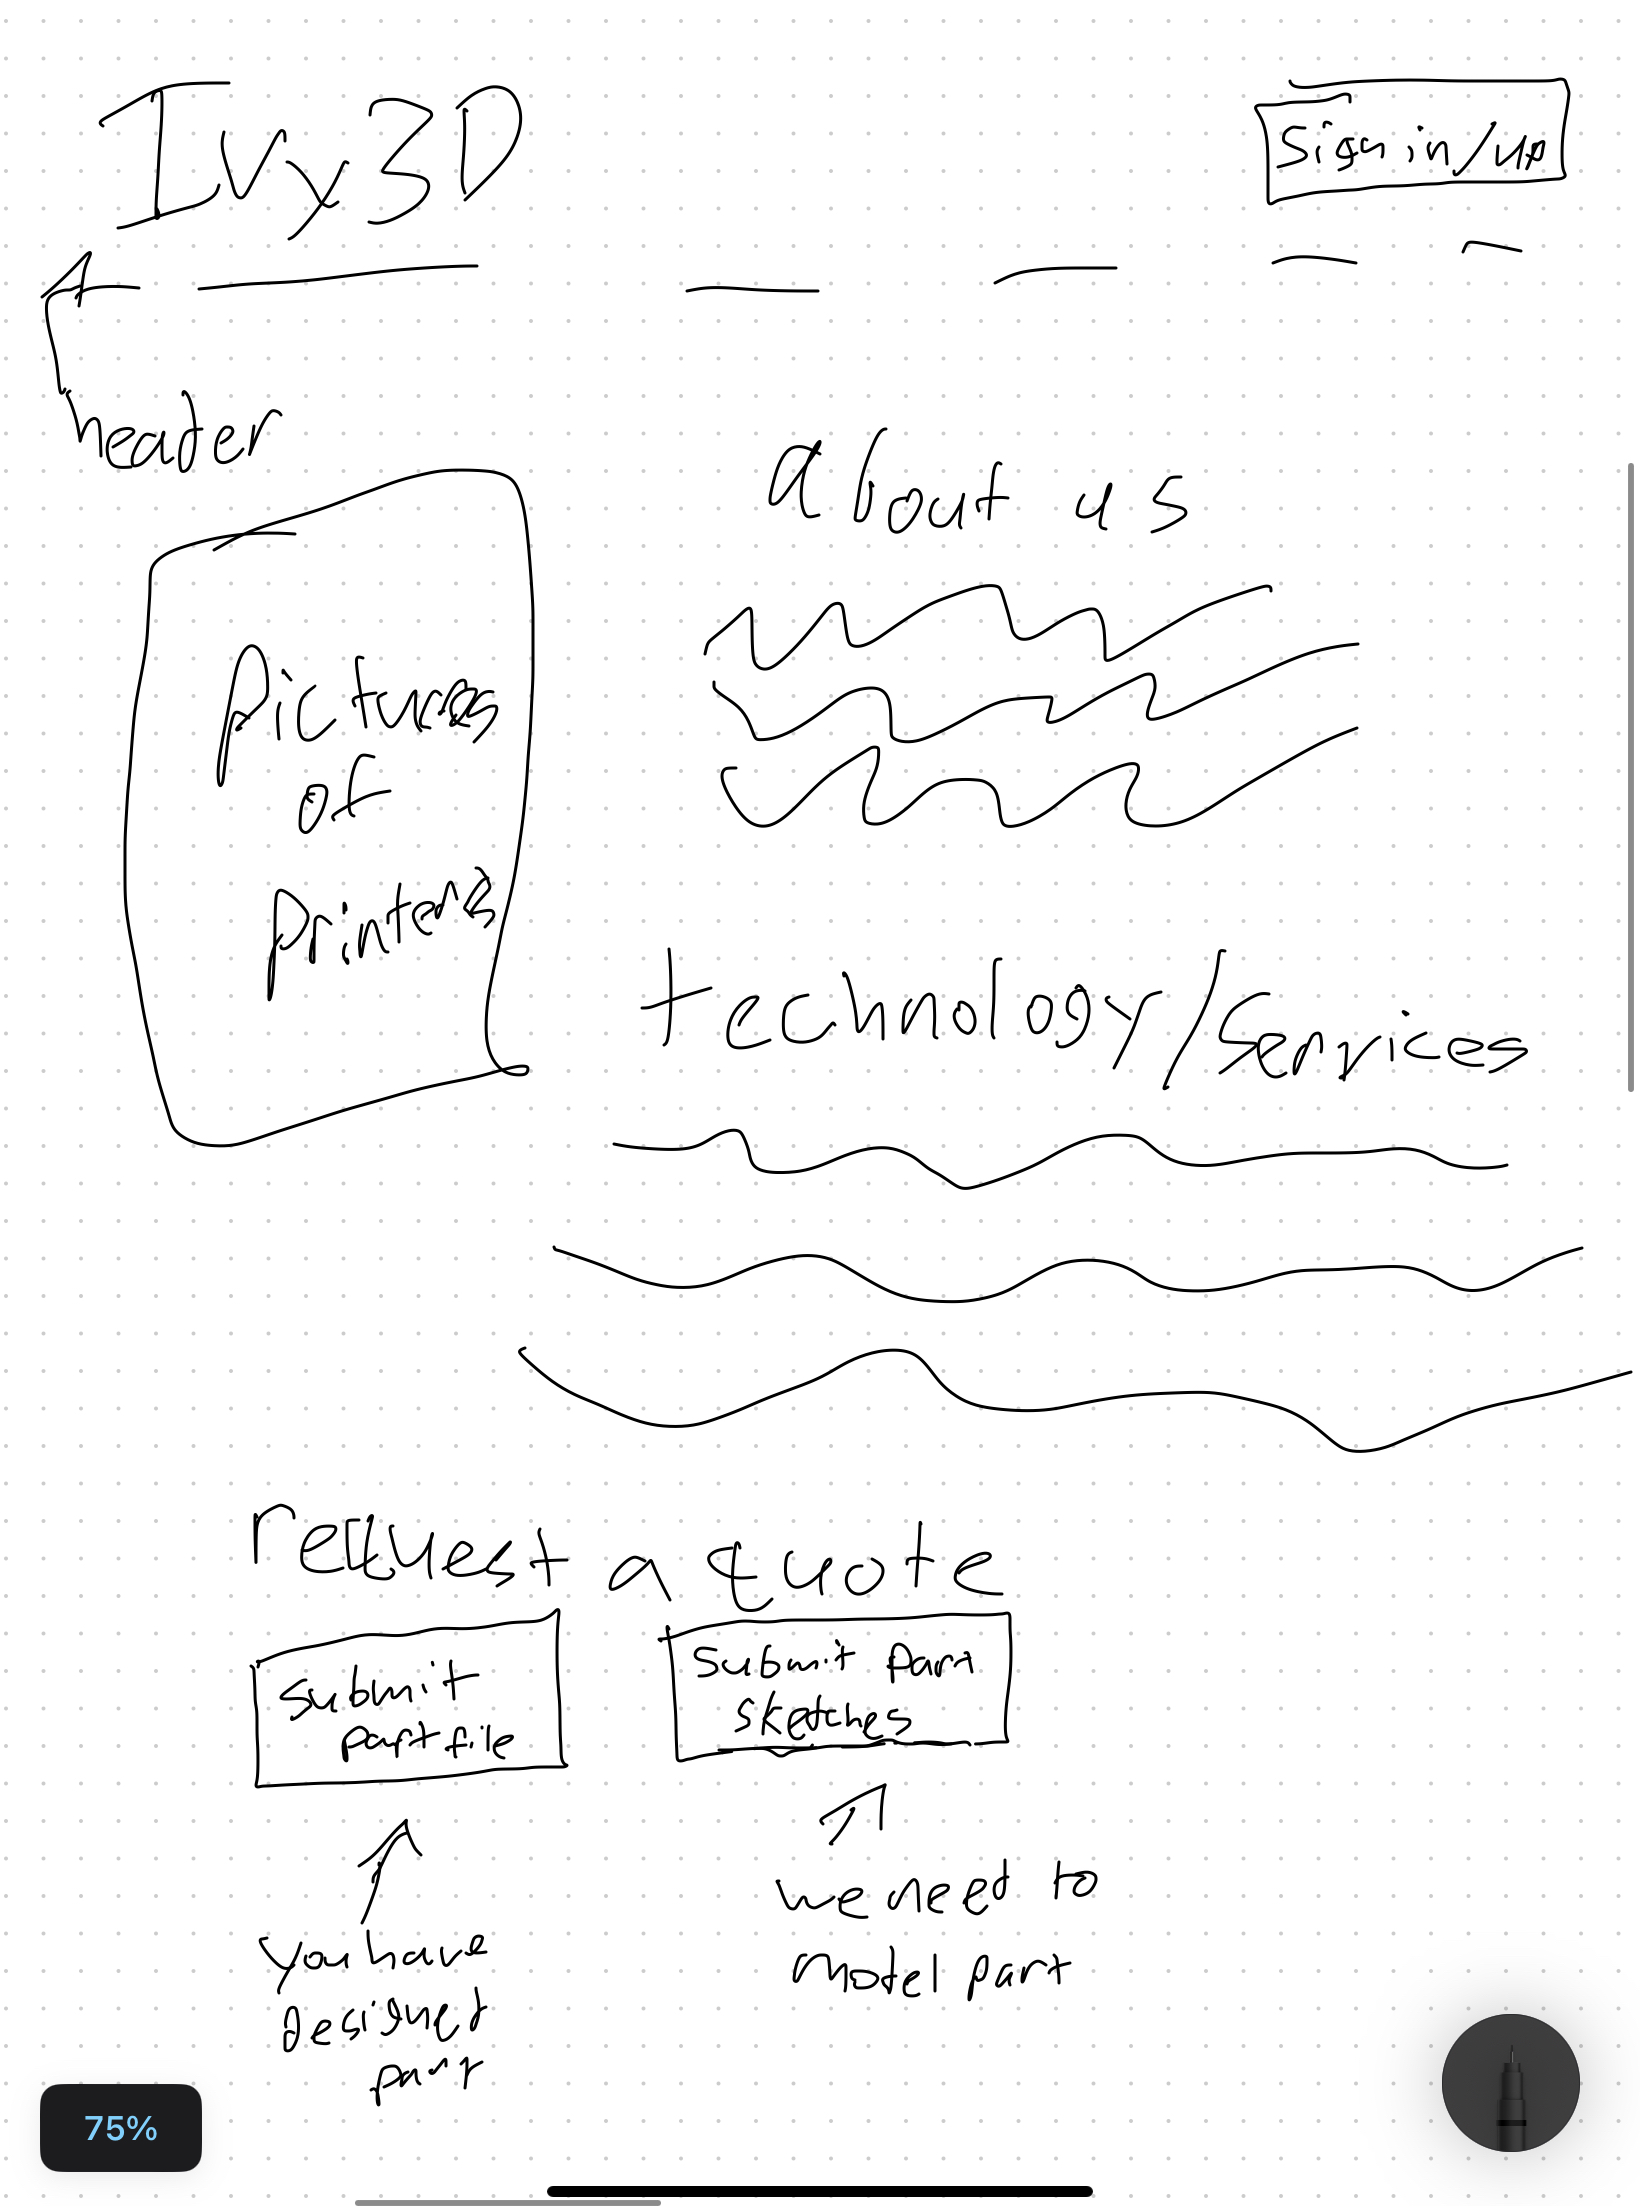 Ivy3D
sign in/up
header
about us
pictures
of
printers
technology/services
request a quote
submit
part file
submit part
sketches
you have
designed
part
we need to
model part
75%